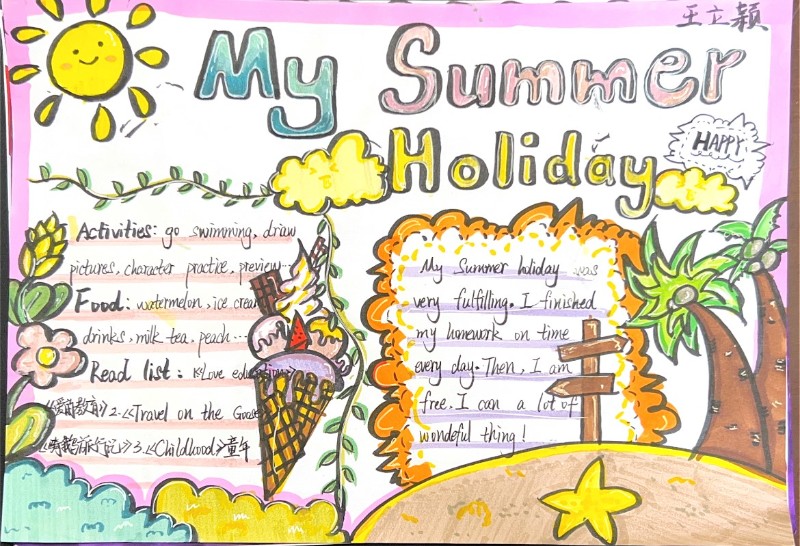 王立颖
My Summer
Holiday
HAPPY
Activities: go swimming, draw
pictures, character practice, preview...
Food: watermelon, ice cream
drinks, milk tea, peach...
Read list: 1.《Love education》
《爱的教育》2.《Travel on the Goose》
《骑鹅旅行记》3.《Childhood》童年
My Summer holiday was
very fulfilling. I finished
my homework on time
every day. Then, I am
free. I can a lot of
wondeful thing!